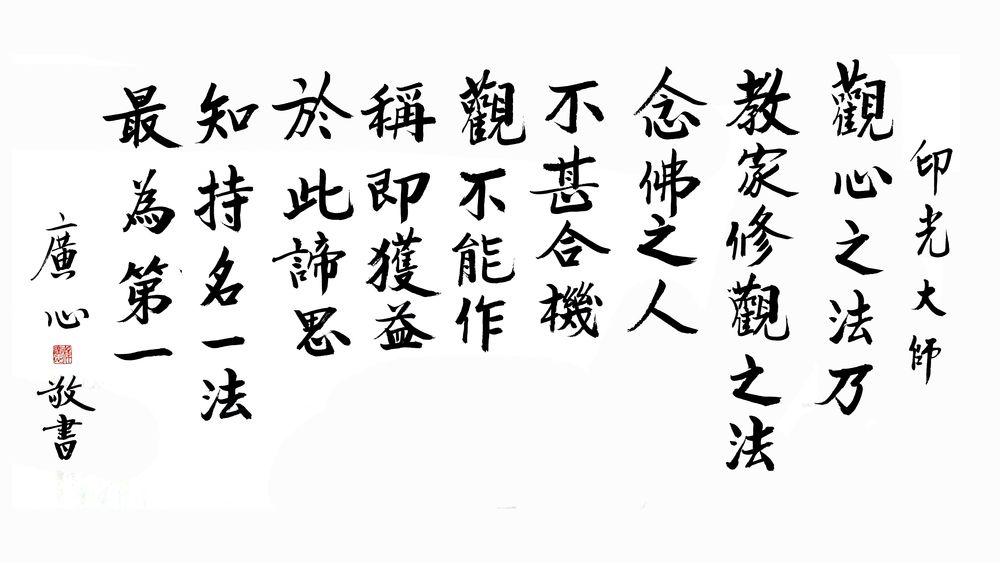 印光大師
觀心之法乃
教家修觀之法
念佛之人
不甚合機
觀不能作
稱即獲益
於此諦思
知持名一法
最為第一
廣心
敬書